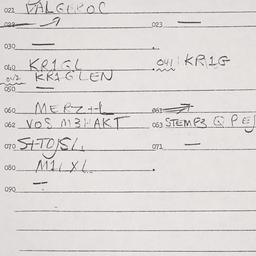 021 DALGEKOC
022
023 —
030 —
040 KR1GL
041 KR1G
042 KR1GLEN
050 —
060 MERZ+L
061
062 VOS M3HAKT
063 STEMP3 Q P E
070
071 —
080 M1LXL
090 —